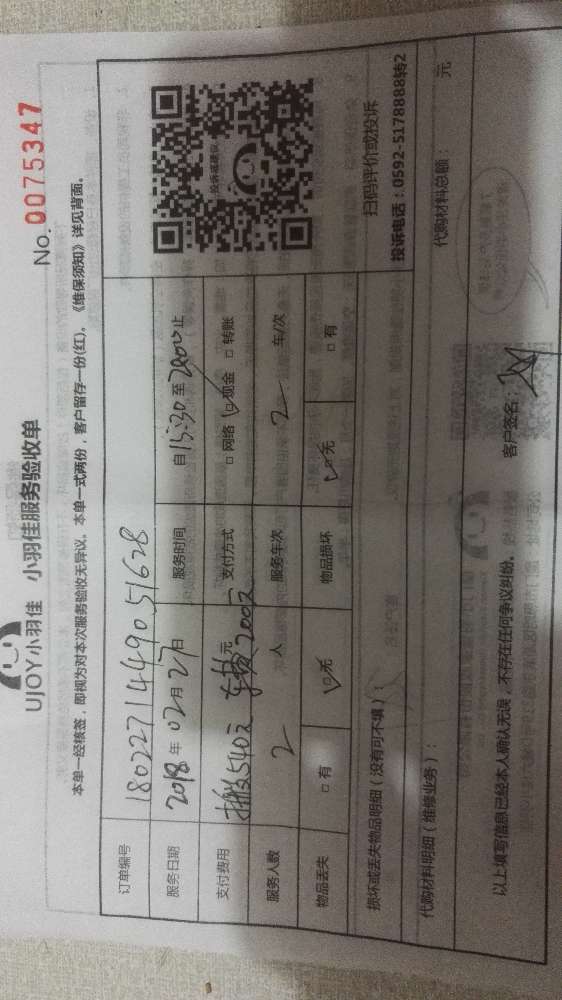 No. 0075347
UJOY小羽佳 小羽佳服务验收单
本单一经核签，即视为对本次服务验收无异议。本单一式两份，客户留存一份(红)。《维保须知》详见背面。
订单编号 180227144905 1628
服务日期 2018年02月27日 服务时间 自15:30至20:00止
支付费用 540元 车费200元 元 支付方式 □网络 ☑现金 □转账
服务人数 2 人 服务车次 2 车/次
物品丢失 □有 ☑无 物品损坏 ☑无 □有
投诉或建议
扫码评价或投诉
投诉电话：0592-5178888转2
损坏或丢失物品明细（没有可不填）：
代购材料明细（维修业务）： 代购材料总额： 元
以上填写信息已经本人确认无误，不存在任何争议纠纷。 客户签名：